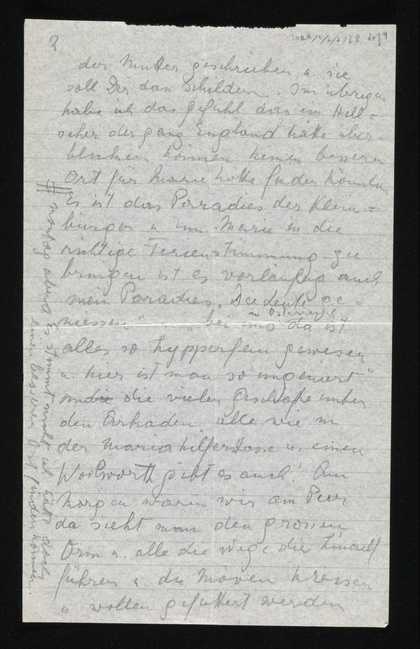 2
der Mutter geschrieben, u. sie
soll Dir das schildern. Im übrigen
habe ich das Gefühl dass ein Hell-
seher der ganz England hätte über-
blicken können keinen besseren
Ort für Marie hätte finden können
Es ist das Parradies der Klein-
bürger u. um Marie in die
richtige Ferienstimmung zu
bringen ist es vorläufig auch
mein Paradies. Die Leute ge-
niessen "bei uns da ist
in Osterreich
alles so hypperfein gewesen
u. hier ist man so ungeniert"
und die vielen Geschäfte unter
den Arkaden alle wie in
der Mariahilferstrasse u. einen
Woolworth gibt es auch! Am
Morgen waren wir am Pier
da sieht man den grossen
Orm u. alle die Wege die hinauf
führen u. die Möven
u. wollen gefüttert werden
Montag abend Es stimmt nicht ich hätte doch
einen besseren Ort finden können.